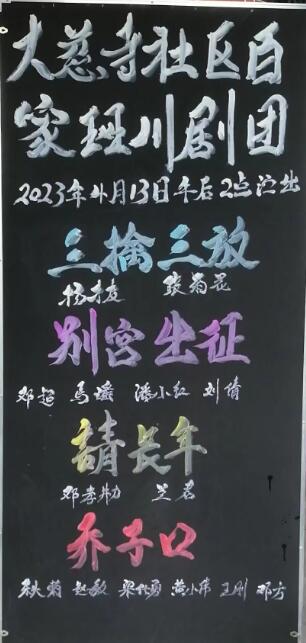 大慈寺社区百
家班川剧团
2023年4月13日午后2点泣出
三擒三放
杨才友
别宫出征
邓超 马瑶 潘小红 刘倩
請长年
邓孝勤 兰君
乔子口
秋菊 赵敏 梁代勇 黄小伟 王刚 邓方